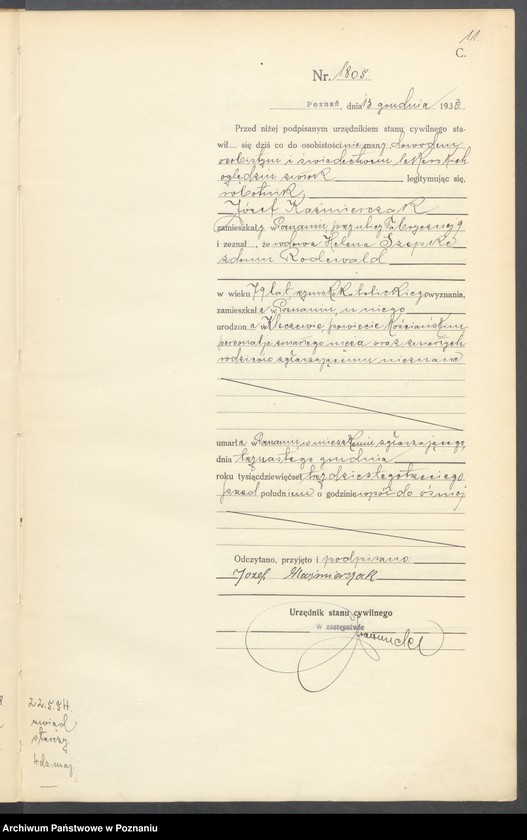 11
C.
Nr. 1805.
Poznań, dnia 13 grudnia 1933.
Przed niżej podpisanym urzędnikiem stanu cywilnego sta-
wił się dziś co do osobistości nieznany, dowodem
osobistym i świadectwem lekarskich
oględzin zwłok legitymując się,
robotnik,
Józef Kaźmierczak
zamieszkały w Poznaniu przy ulicy Fabrycznej 9
i zeznał, że wdowa Helena Szepke
z domu Rodewald
w wieku 79 lat rzymskokatolickiego wyznania,
zamieszkała w Poznaniu, u niego
urodzona w powiecie Kościańskim
personalja zmarłego męża oraz zmarłych
rodziców zgłaszającemu nieznane
umarła w Poznaniu, w mieszkaniu zgłaszającego,
dnia trzynastego grudnia
roku tysiąc dziewięćset trzydziestego trzeciego
przed południem o godzinie wpół do ósmej
Odczytano, przyjęto i podpisano:
Józef Kaźmierczak
Urzędnik stanu cywilnego
W zastępstwie
22.5.54.
uwiąd
starczy
Archiwum Państwowe w Poznaniu